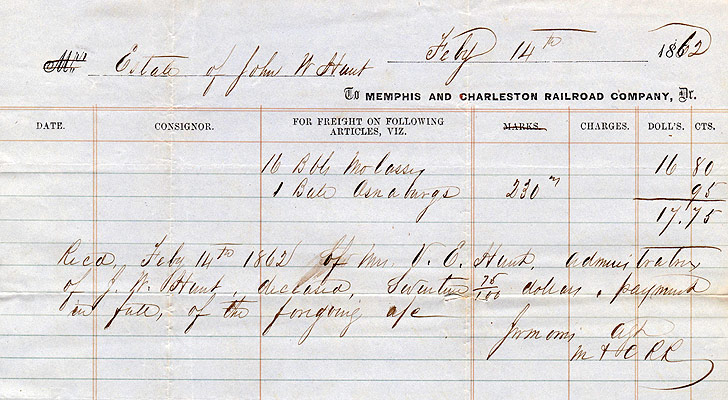 Estate of John W Hunt Feby 14th 1862
To MEMPHIS AND CHARLESTON RAILROAD COMPANY, Dr.
DATE. CONSIGNOR. FOR FREIGHT ON FOLLOWING ARTICLES, VIZ. MARKS. CHARGES. DOLL'S. CTS.
16 Bbls Molasses 16 80
1 Bale Osnaburgs 230 95
17.75
Recd, Feby 14th 1862 of Mrs. V. E. Hunt, administratrix
of J. W. Hunt, deceased, Seventeen 75/100 dollars, payment
in full, of the forgoing a/c
Agt
M & C R R